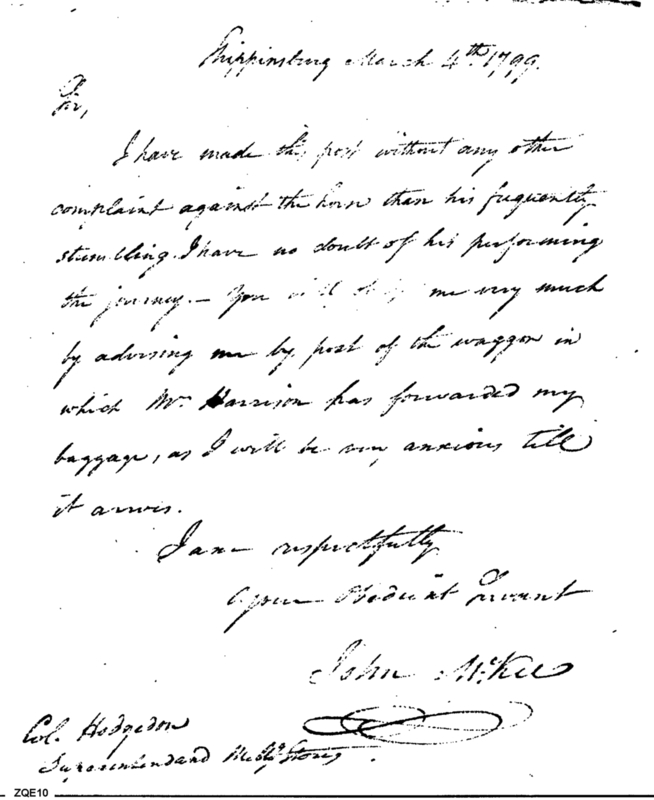 Shippinsburg March 4th. 1799.
Sir,
I have made this post without any other
complaint against the horse than his frequently
stumbling. I have no doubt of his performing
the journey. – You will me very much
by advising me by post of the waggon in
which Mr. Harrison has forwarded my
baggage, as I will be very anxious till
it arrives.
I am respectfully
Your Obedient Servant
John McKee
Col. Hodgdon
Superintendand Stores.
ZQE10